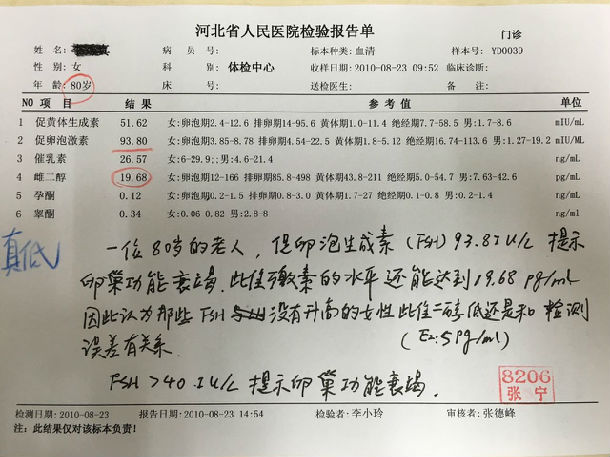 河北省人民医院检验报告单 门诊
姓 名: 病 员 号: 标本种类:血清 样本号: YD0039
性 别:女 科 别: 体检中心 收样日期:2010-08-23 09:52 临床诊断:
年 龄:80岁 床 号: 送检医生: 备 注:
NO 项 目 结 果 参 考 值 单位
1 促黄体生成素 51.62 女:卵泡期2.4-12.6 排卵期14-95.6 黄体期1.0-11.4 绝经期7.7-58.5 男:1.7-8.6 mIU/mL
2 促卵泡激素 93.80 女:卵泡期3.85-8.78 排卵期4.54-22.5 黄体期1.8-5.12 绝经期16.74-113.6 男:1.27-19.2 mIU/ML
3 催乳素 26.57 女:6-29.9;;男:4.6-21.4 ng/mL
4 雌二醇 19.68 女:卵泡期12-166 排卵期85.8-498 黄体期43.8-211 绝经期5.0-54.7 男:7.63-42.6 pg/mL
5 孕酮 0.12 女:卵泡期0.2-1.5 排卵期0.8-3.0 黄体期1.7-27 绝经期0.1-0.8 男:0.2-1.4 ng/mL
6 睾酮 0.34 女:0.06 0.82 男:2.8-8 ng/ml
真低
一位80岁的老人,促卵泡生成素(FSH)93.8IU/L 提示
卵巢功能衰竭.此雌激素的水平还能达到19.68 pg/mL
因此认为那些FSH 没有升高的女性此雌二醇低还是和检测
误差有关系. (E2:5pg/ml)
FSH>40 IU/L 提示卵巢功能衰竭.
8206
张宁
检测日期:2010-08-23 报告日期:2010-08-23 14:54 检验者:李小玲 审核者:张德峰
注:此结果仅对该标本负责!